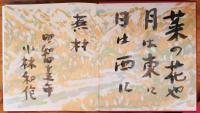 菜の花や
月は東に
日は西に
蕪村
小林和作